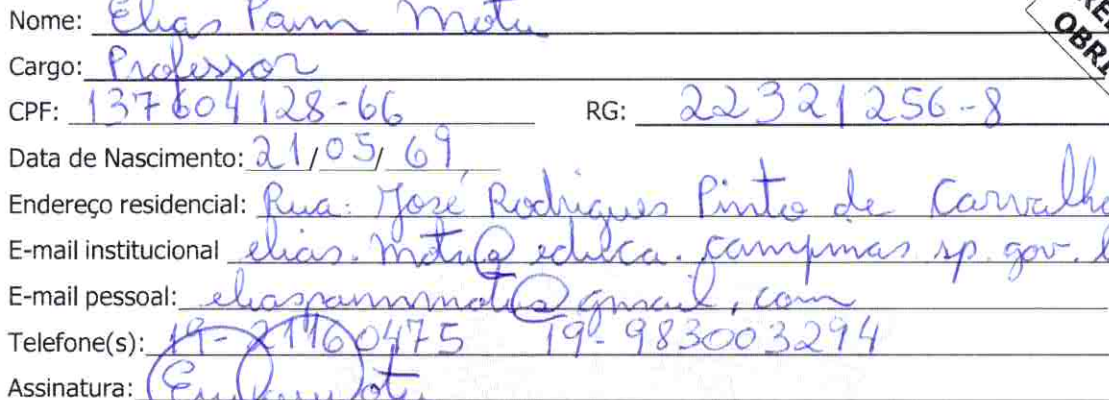 Nome: Elias Pain Motu
OBRI
Cargo: Professor
CPF: 137604128-66 RG: 22321256-8
Data de Nascimento: 21/05/69
Endereço residencial: Rua: José Rodrigues Pinto de Carvalho
E-mail institucional elias.motu@educa.campinas.sp.gov.b
E-mail pessoal: eliaspainmotu@gmail,com
Telefone(s): 19-21160475 19-983003294
Assinatura: